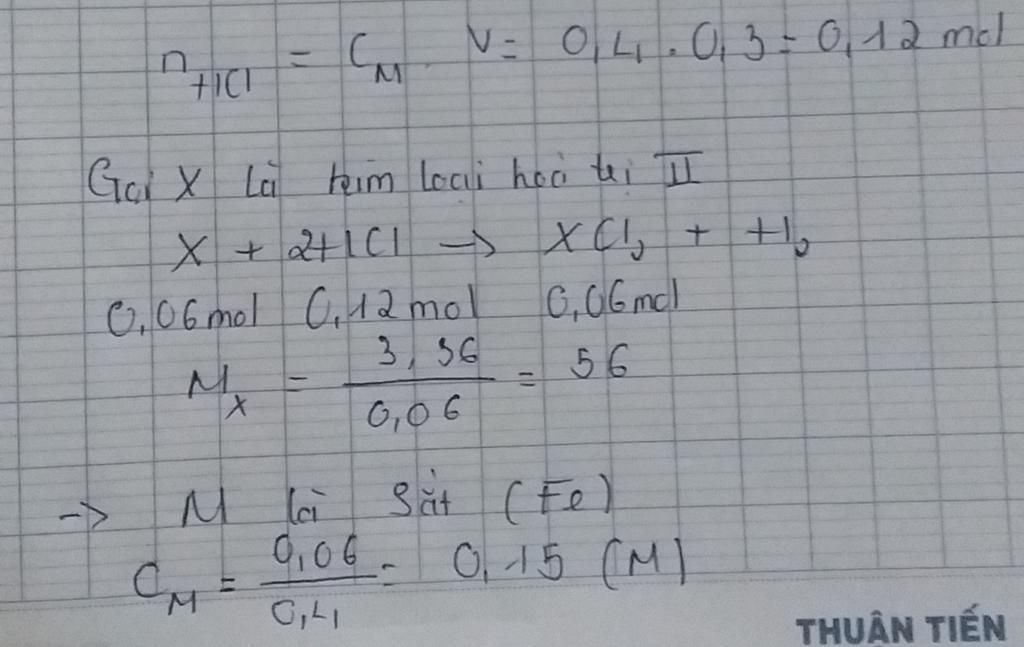 n_HCl = C_M. V = 0,4 . 0,3 = 0,12 mol
Gọi X là kim loại hoá trị II
X + 2HCl → XCl₂ + H₂
0,06mol 0,12mol 0,06mol
M_X = 3,36 / 0,06 = 56
→ M là Sắt (Fe)
C_M = 0,06 / 0,4 = 0,15 (M)
THUẬN TIẾN